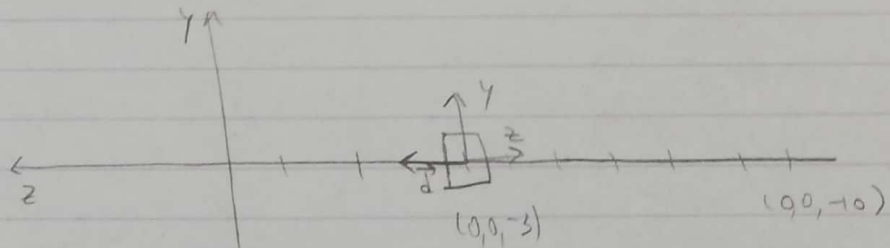 y
y
z
z
d
(0,0,-3)
(0,0,-10)